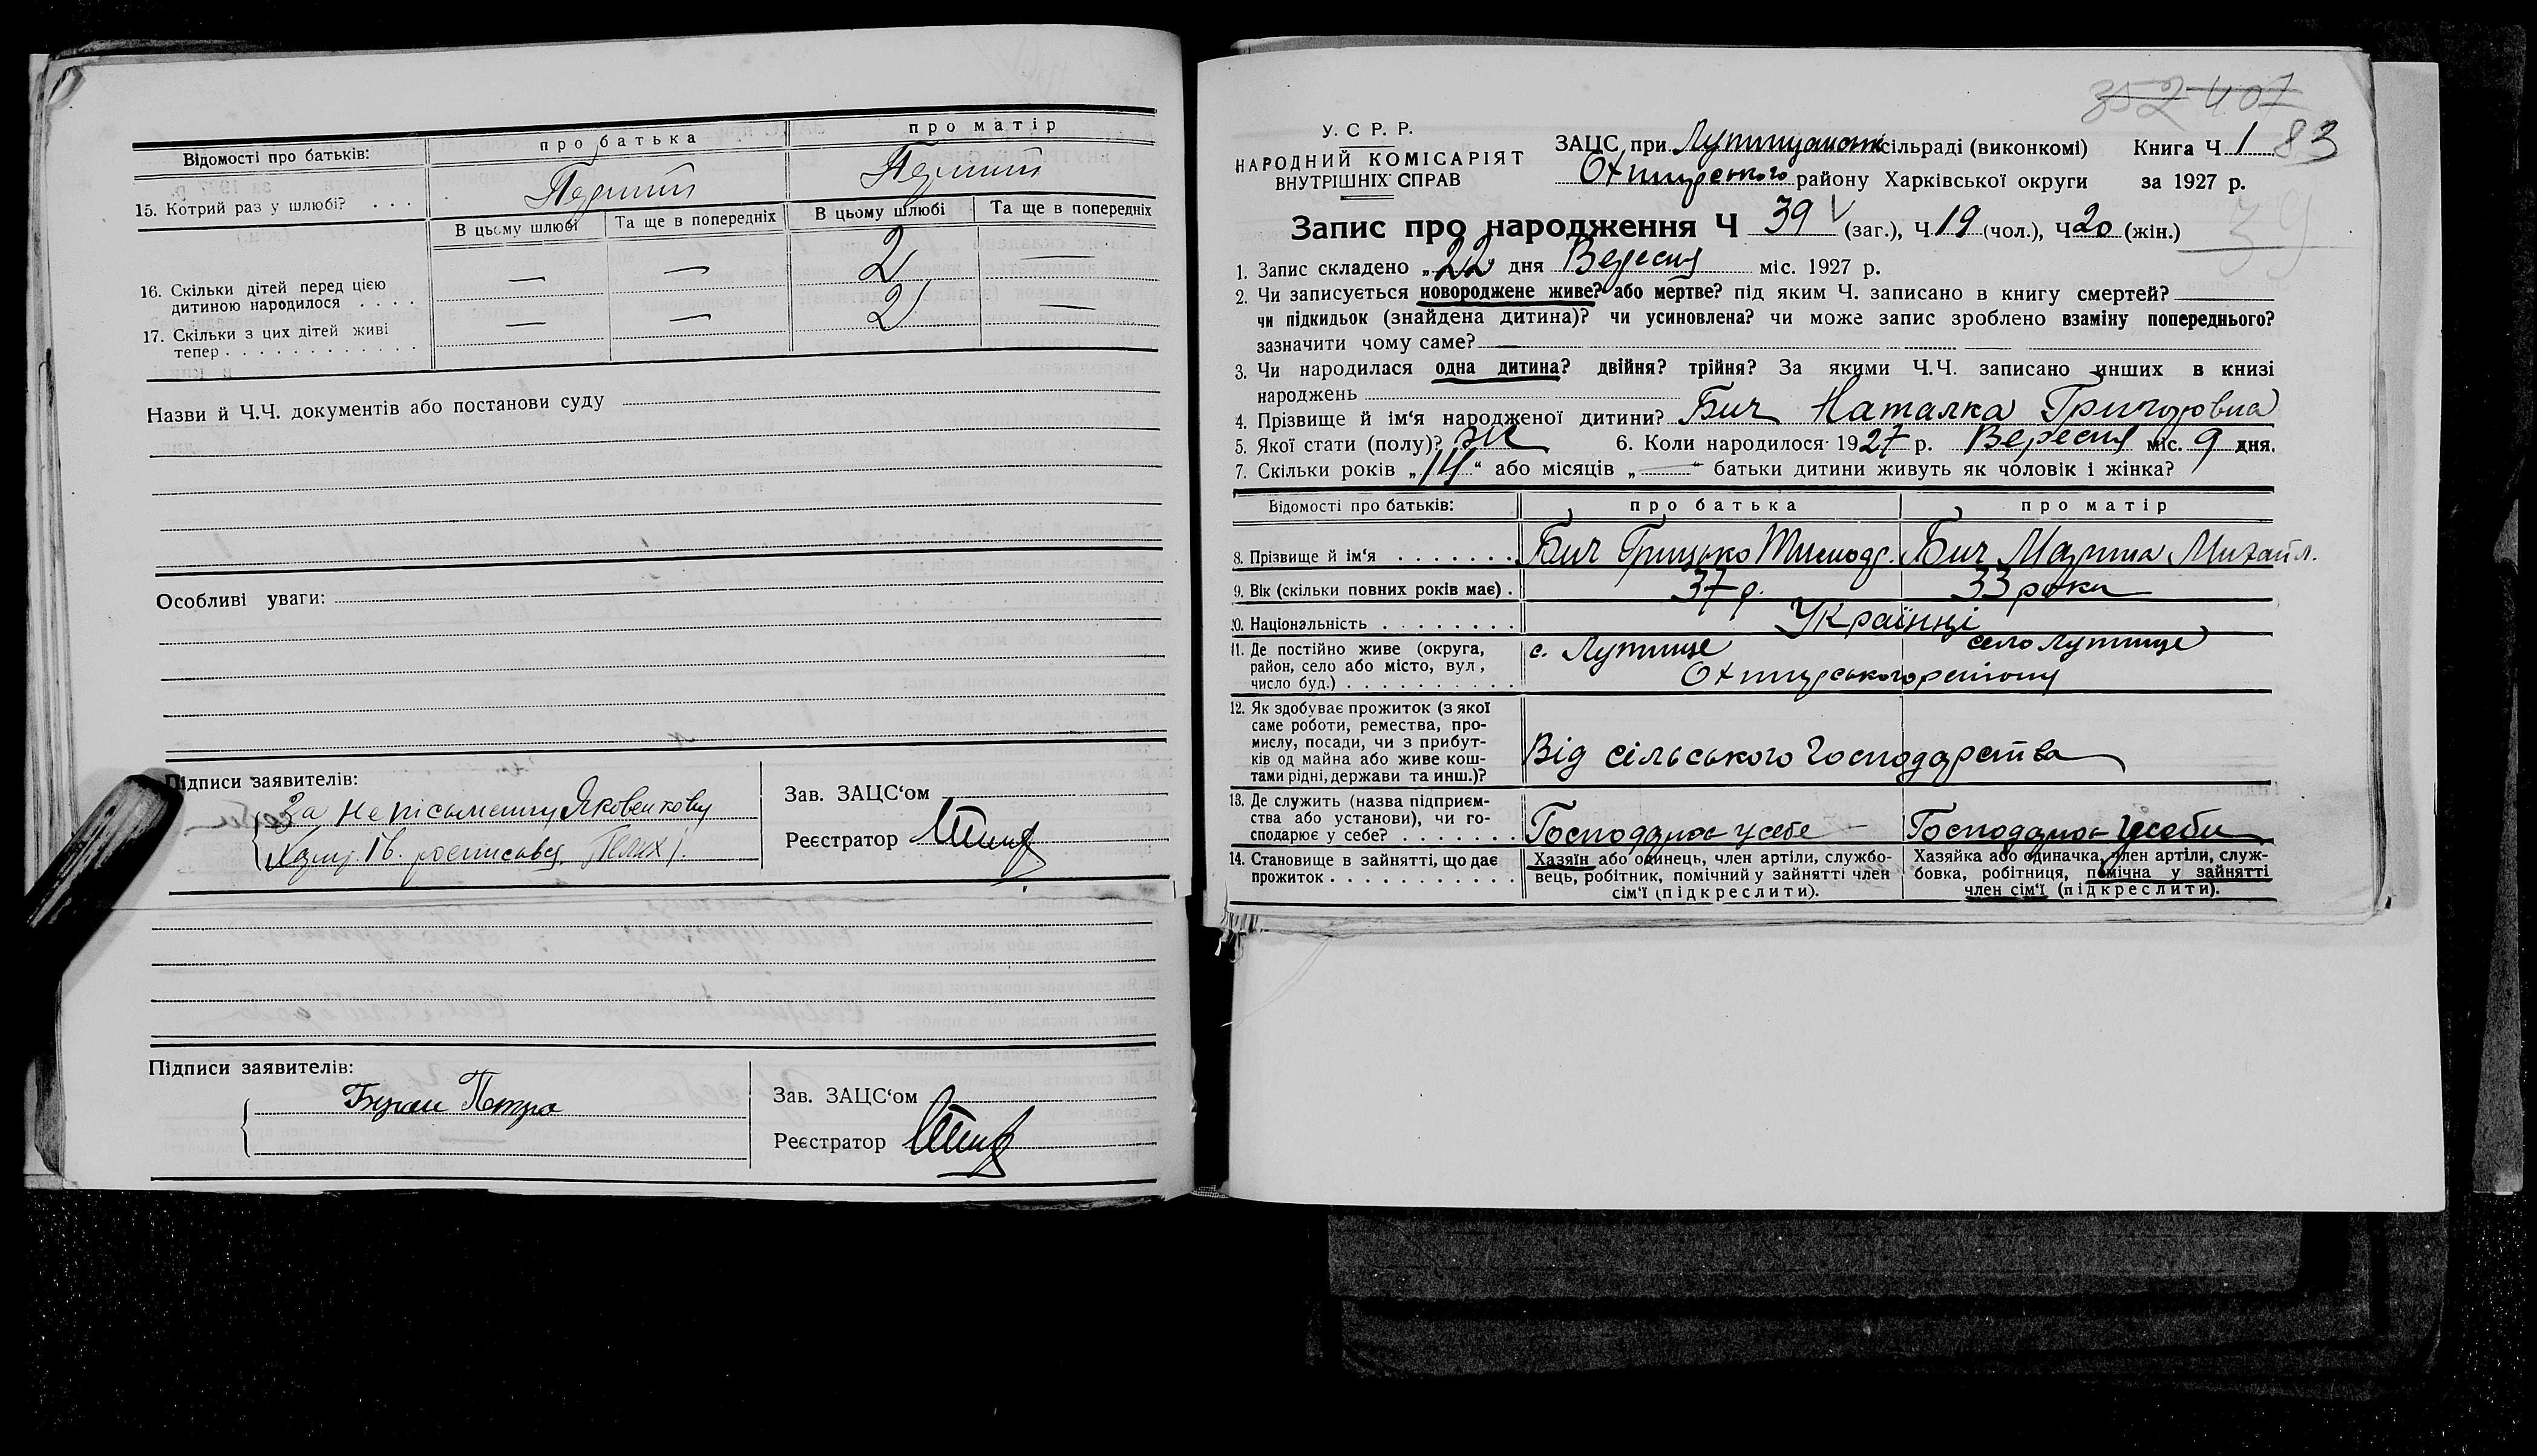 Відомості про батьків:
про батька
про матір
15. Котрий раз у шлюбі? . . .
Перший
Перший
В цьому шлюбі
Та ще в попередніх
В цьому шлюбі
Та ще в попередніх
16. Скільки дітей перед цією
дитиною народилося . . . .
— — 2 —
17. Скільки з цих дітей живі
тепер . . . . . . . . . . . .
— — 2 —
Назви й Ч.Ч. документів або постанови суду
Особливі уваги:
Підписи заявителів:
За непісьменну Яковенкову
Ів. росписався
Зав. ЗАЦС'ом
Реєстратор
Підписи заявителів:
Петро
Зав. ЗАЦС'ом
Реєстратор
352 407
83
У. С Р. Р.
НАРОДНИЙ КОМІСАРІЯТ
ВНУТРІШНІХ СПРАВ
ЗАЦС при Лутищанські сільраді (виконкомі)
Книга Ч 1
Охтирського району Харківської округи
за 1927 р.
Запис про народження Ч 39 (заг.), Ч 19 (чол.), Ч 20 (жін.)
39
1. Запис складено „22 дня Вересня міс. 1927 р.
2. Чи записується новороджене живе? або мертве? під яким Ч. записано в книгу смертей?
чи підкидьок (знайдена дитина)? чи усиновлена? чи може запис зроблено взаміну попереднього?
зазначити чому саме? —
3. Чи народилася одна дитина? двійня? трійня? За якими Ч.Ч. записано инших в книзі
народжень
4. Прізвище й ім'я народженої дитини? Бич Наталка Григоровна
5. Якої стати (полу)? ж 6. Коли народилося 1927 р. Вересня міс. 9 дня.
7. Скільки років „14" або місяців „—" батьки дитини живуть як чоловік і жінка?
Відомості про батьків:
про батька
про матір
8. Прізвище й ім'я . . . . . . .
Бич Грицько Тимофр.
Бич Марина Михайл.
9. Вік (скільки повних років має) .
37 р.
33 роки
10. Національність . . . . . . . .
Українці
11. Де постійно живе (округа,
район, село або місто, вул,
число буд.) . . . . . . . . . .
с. Лутище
село Лутище
Охтирського району
12. Як здобуває прожиток (з якої
саме роботи, ремества, про-
мислу, посади, чи з прибут-
ків од майна або живе кош-
тами рідні, держави та инш.)?
Від сільського господарства
13. Де служить (назва підприєм-
ства або установи), чи го-
сподарює у себе? . . . . . . .
Господарює у себе
Господарює у себе
14. Становище в зайнятті, що дає
прожиток . . . . . . . . . . .
Хазяїн або одинець, член артіли, службо-
вець, робітник, помічний у зайнятті член
сім'ї (підкреслити).
Хазяйка або одиначка, член артіли, служ-
бовка, робітниця, помічна у зайнятті
член сім'ї (підкреслити).